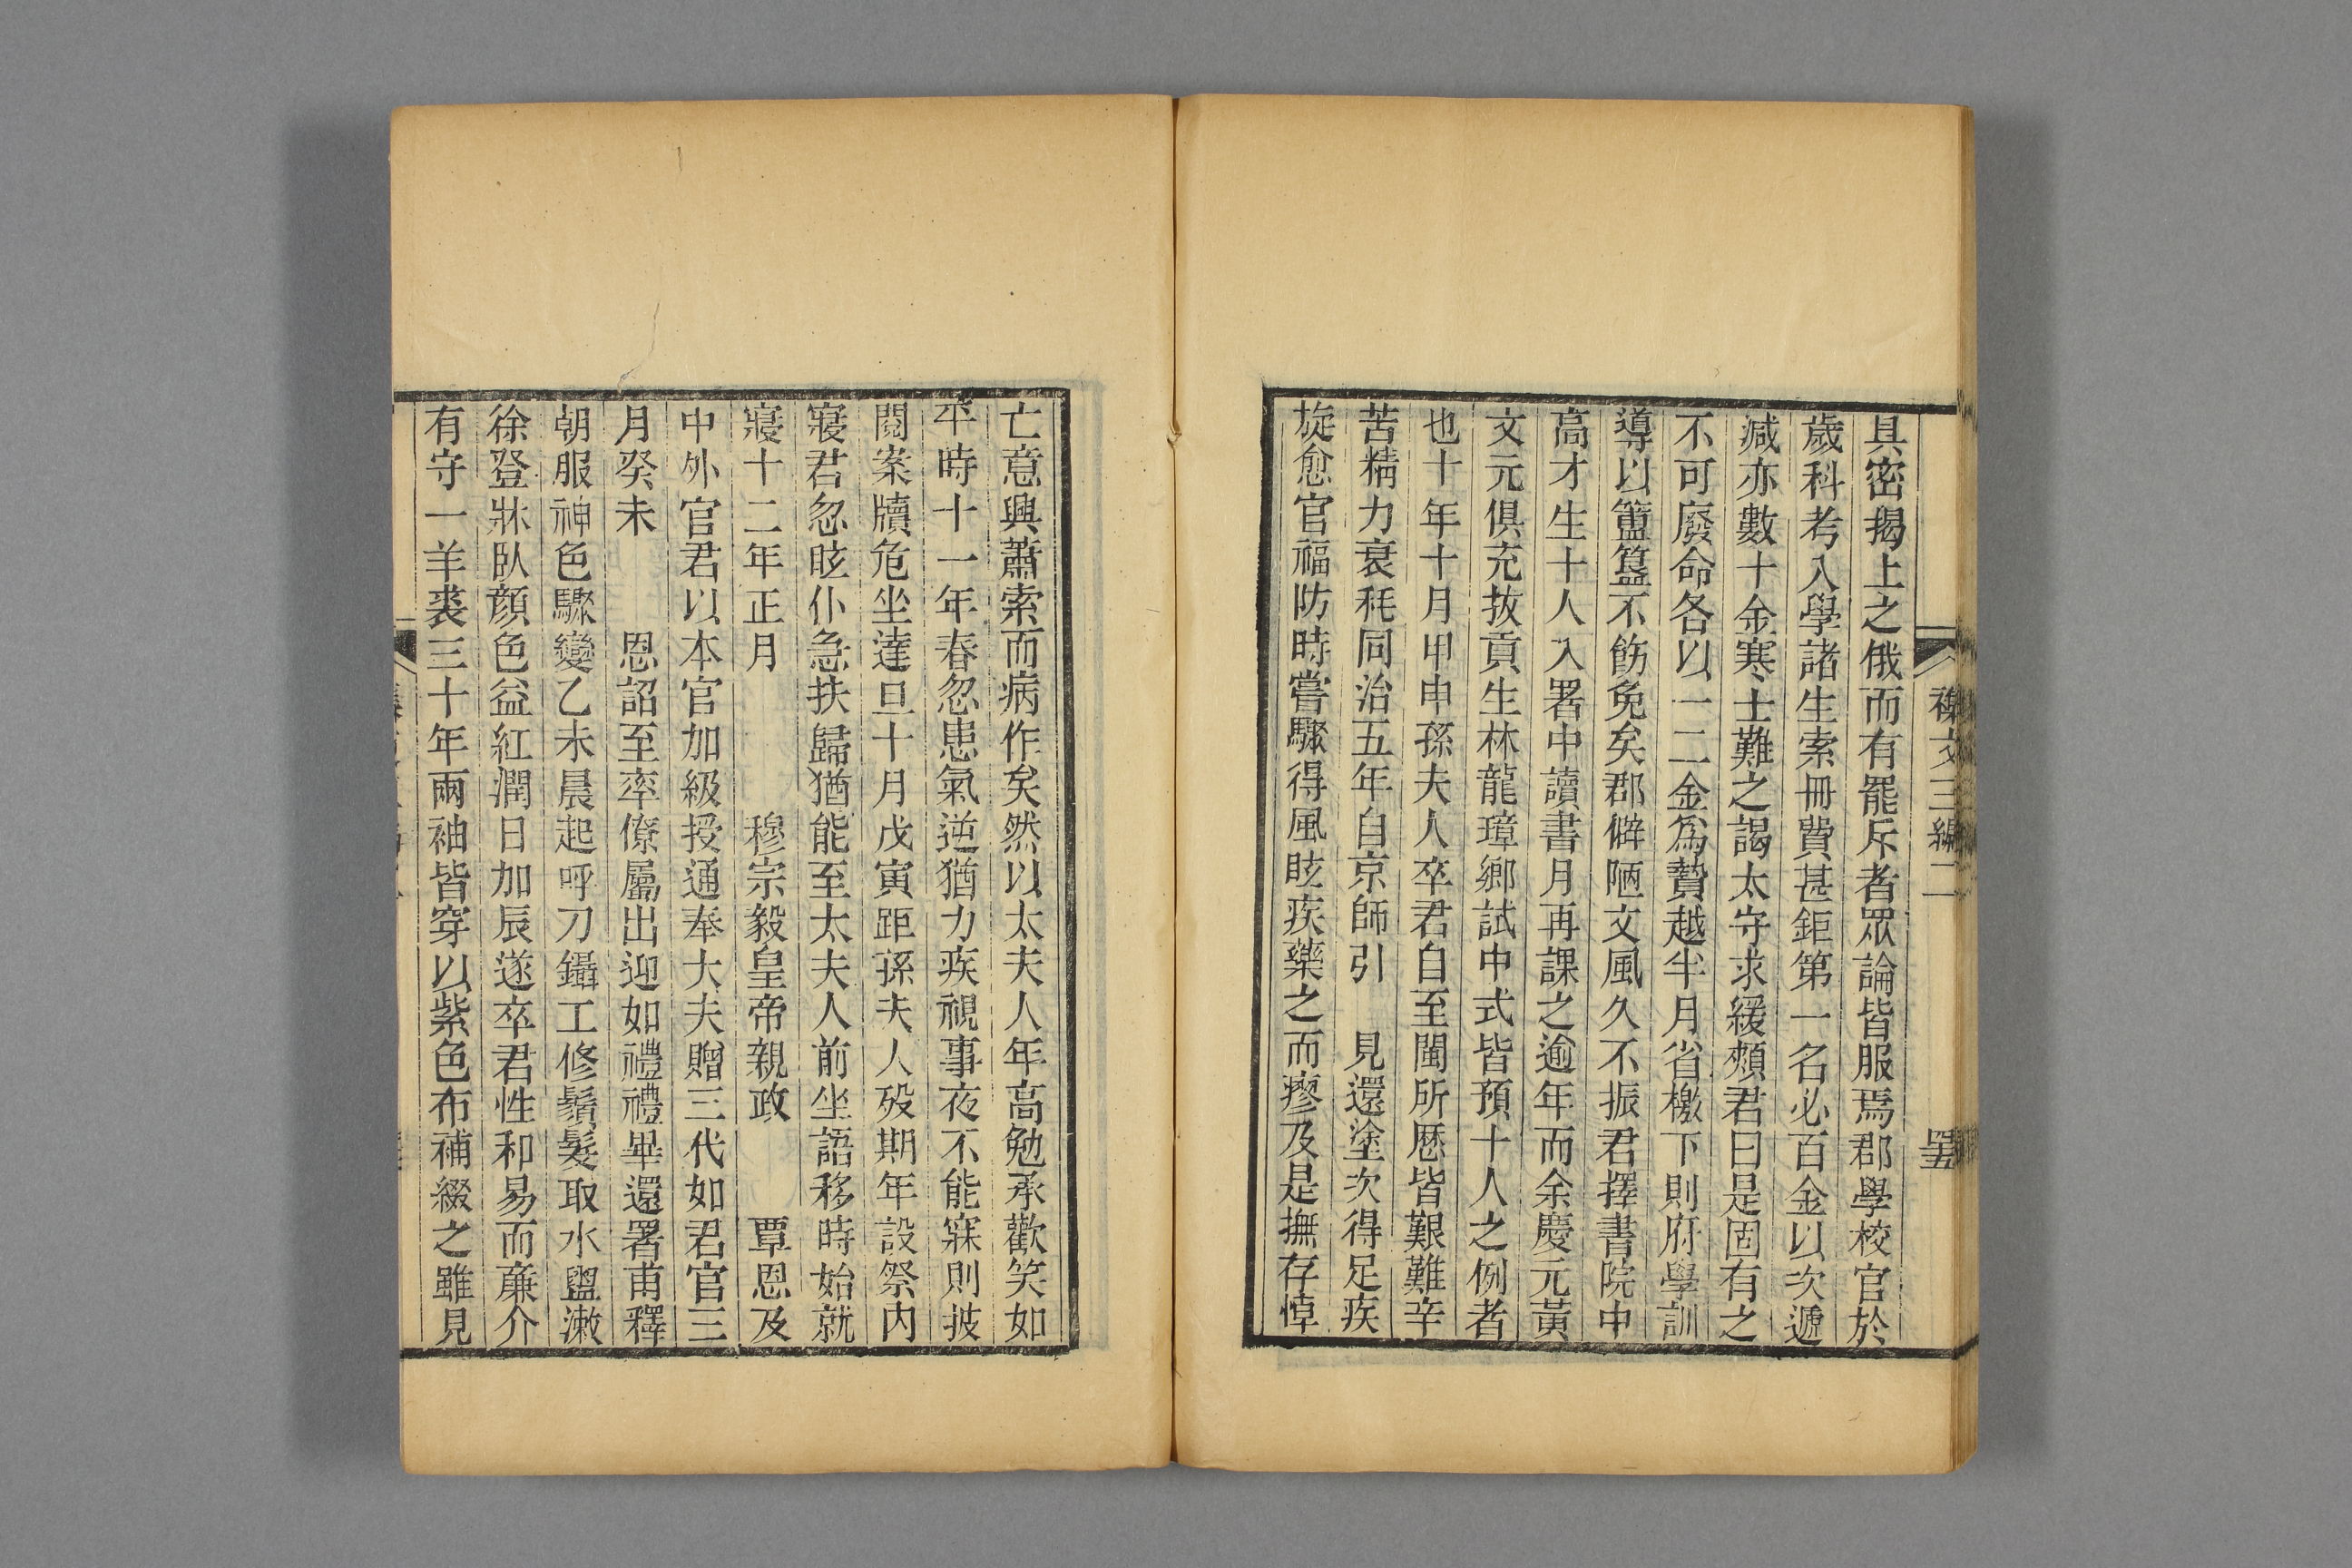 襍文三編二
其密揭上之俄而有罷斥者眾論皆服焉郡學校官於
歲科考入學諸生索冊費甚鉅第一名必百金以次遞
減亦數十金寒士難之謁太守求緩頰君曰是固有之
不可廢命各以一二金為贄越半月省檄下則府學訓
導以簠簋不飭免矣郡僻陋文風久不振君擇書院中
高才生十人入署中讀書月再課之逾年而余慶元黃
文元俱充拔貢生林龍璋鄉試中式皆預十人之例者
也十年十月甲申孫夫人卒君自至閩所歴皆艱難辛
苦精力衰秏同治五年自京師引　見還塗次得足疾
旋愈官福防時嘗驟得風眩疾藥之而瘳及是撫存悼
亡意興蕭索而病作矣然以太夫人年高勉承歡笑如
平時十一年春忽患氣逆猶力疾視事夜不能寐則披
閱案牘危坐達旦十月戊寅距孫夫人歿期年設祭內
寢君忽眩仆急扶歸猶能至太夫人前坐語移時始就
寢十二年正月　　　穆宗毅皇帝親政　　覃恩及
中外官君以本官加級授通奉大夫贈三代如君官三
月癸未　　恩詔至率僚屬出迎如禮禮畢還署甫釋
朝服神色驟變乙未晨起呼刀鑷工修鬚髮取水盥漱
徐登牀臥顏色益紅潤日加辰遂卒君性和易而廉介
有守一羊裘三十年兩袖皆穿以紫色布補綴之雖見